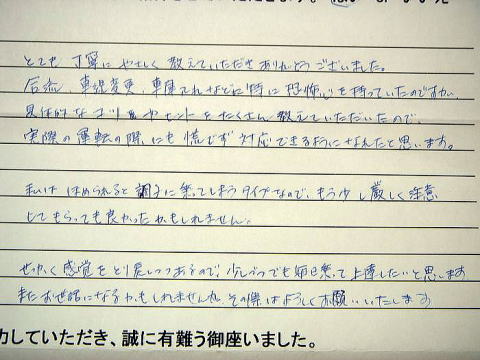 とても丁寧にやさしく教えていただきありがとうございました。
合流、車線変更、車庫入れなどに特に恐怖心を持っていたのですが、
具体的なコツやヒントをたくさん教えていただいたので、
実際の運転の際にも慌てず対応できるようになれたと思います。
私は ほめられると調子に乗ってしまうタイプなので、もう少し厳しく注意
してもらっても良かったかもしれません。
せっかく感覚をとり戻しつつあるので、少しづつでも毎日乗って上達したいと思います
またお世話になるかもしれませんが、その際はよろしくお願いいたします
力していただき、誠に有難う御座いました。